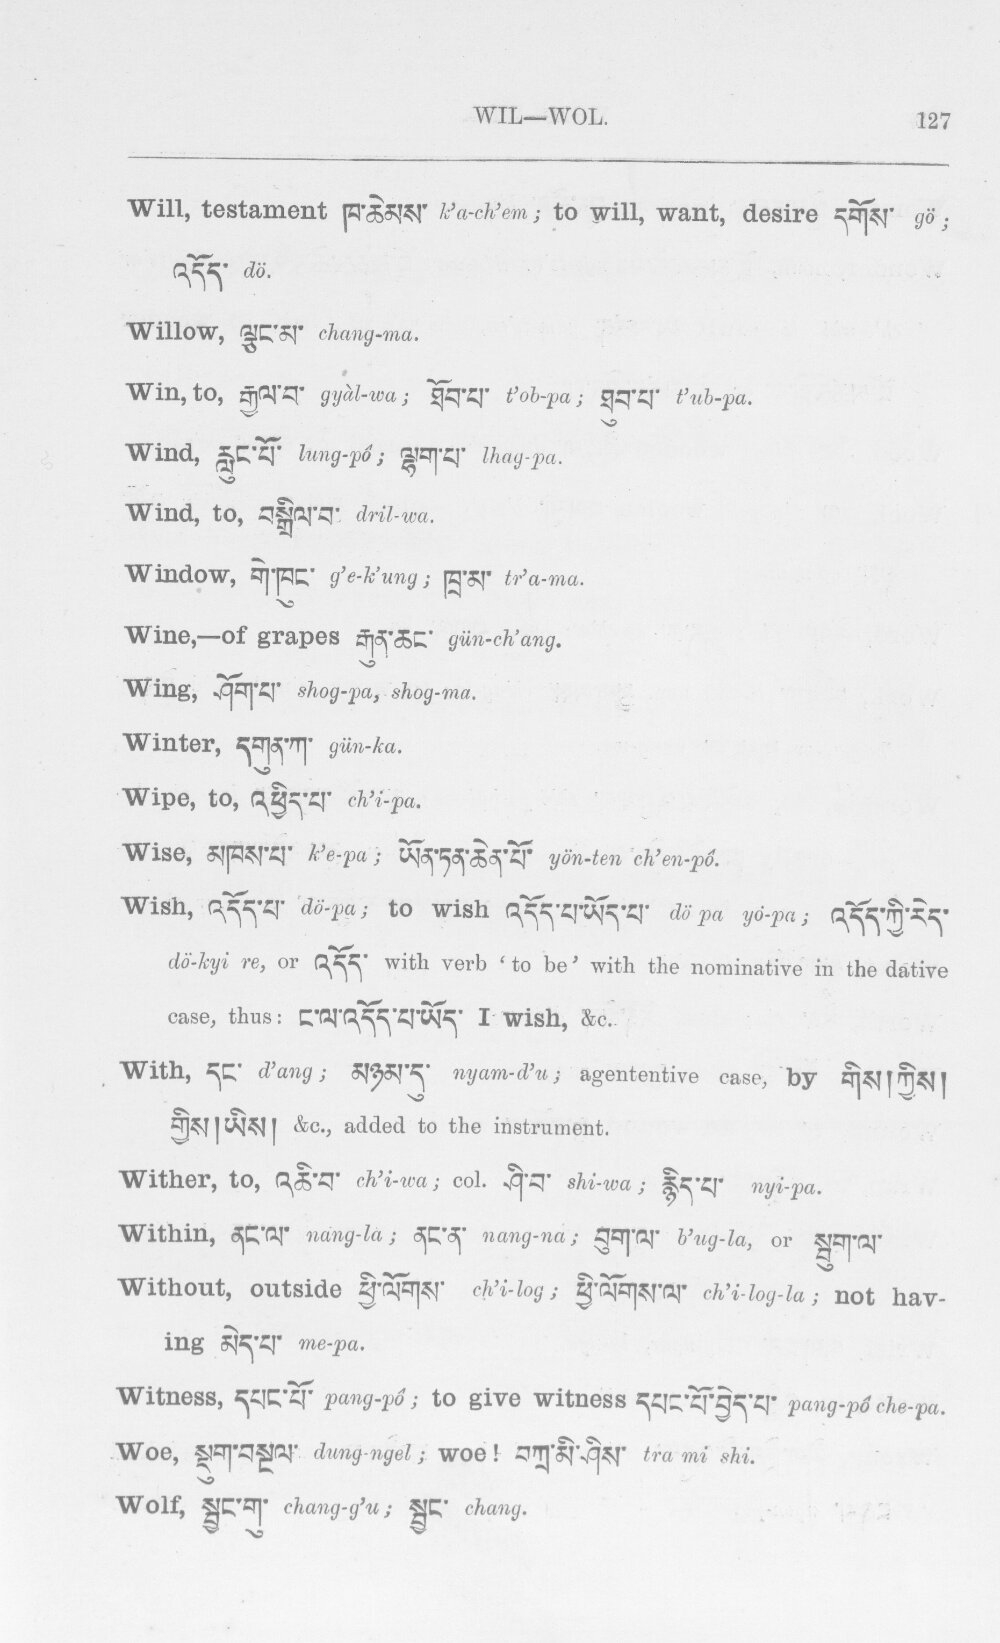 WIL—WOL.
127
Will, testament ཁ་ཆེམས་ k’a-ch’em ; to will, want, desire དགོས་ gö ;
འདོད་ dö.
Willow, ལྕང་མ་ chang-ma.
Win, to, རྒྱལ་བ་ gyàl-wa ; ཐོབ་པ་ t’ob-pa ; ཐུབ་པ་ t’ub-pa.
Wind, རླུང་པོ་ lung-pó ; ལྷག་པ་ lhag-pa.
Wind, to, བསྒྲིལ་བ་ dril-wa.
Window, གེ་ཁུང་ g’e-k’ung ; ཁྲ་མ་ tr’a-ma.
Wine,—of grapes རྒུན་ཆང་ gün-ch’ang.
Wing, ཤོག་པ་ shog-pa, shog-ma.
Winter, དགུན་ཀ་ gün-ka.
Wipe, to, འཕྱིད་པ་ ch’i-pa.
Wise, མཁས་པ་ k’e-pa ; ཡོན་ཏན་ཆེན་པོ་ yön-ten ch’en-pó.
Wish, འདོད་པ་ dö-pa ; to wish འདོད་པ་ཡོད་པ་ dö pa yö-pa ; འདོད་ཀྱི་རེད་
dö-kyi re, or འདོད་ with verb ‘ to be ’ with the nominative in the dative
case, thus : ང་ལ་འདོད་པ་ཡོད་ I wish, &c.
With, དང་ d’ang ; མཉམ་དུ་ nyam-d’u ; agententive case, by གིས།ཀྱིས།
གྱིས།ཡིས། &c., added to the instrument.
Wither, to, འཆི་བ་ ch’i-wa ; col. ཤི་བ་ shi-wa ; རྙིད་པ་ nyi-pa.
Within, ནང་ལ་ nang-la ; ནང་ན་ nang-na ; བུག་ལ་ b’ug-la, or སྦུག་ལ་
Without, outside ཕྱི་ལོགས་ ch’i-log ; ཕྱི་ལོགས་ལ་ ch’i-log-la ; not hav-
ing མེད་པ་ me-pa.
Witness, དཔང་པོ་ pang-pó ; to give witness དཔང་པོ་བྱེད་པ་ pang-pó che-pa.
Woe, སྡུག་བསྔལ་ dung-ngel ; woe ! བཀྲ་མི་ཤིས་ tra mi shi.
Wolf, སྤྱང་གུ་ chang-g’u ; སྤྱང་ chang.